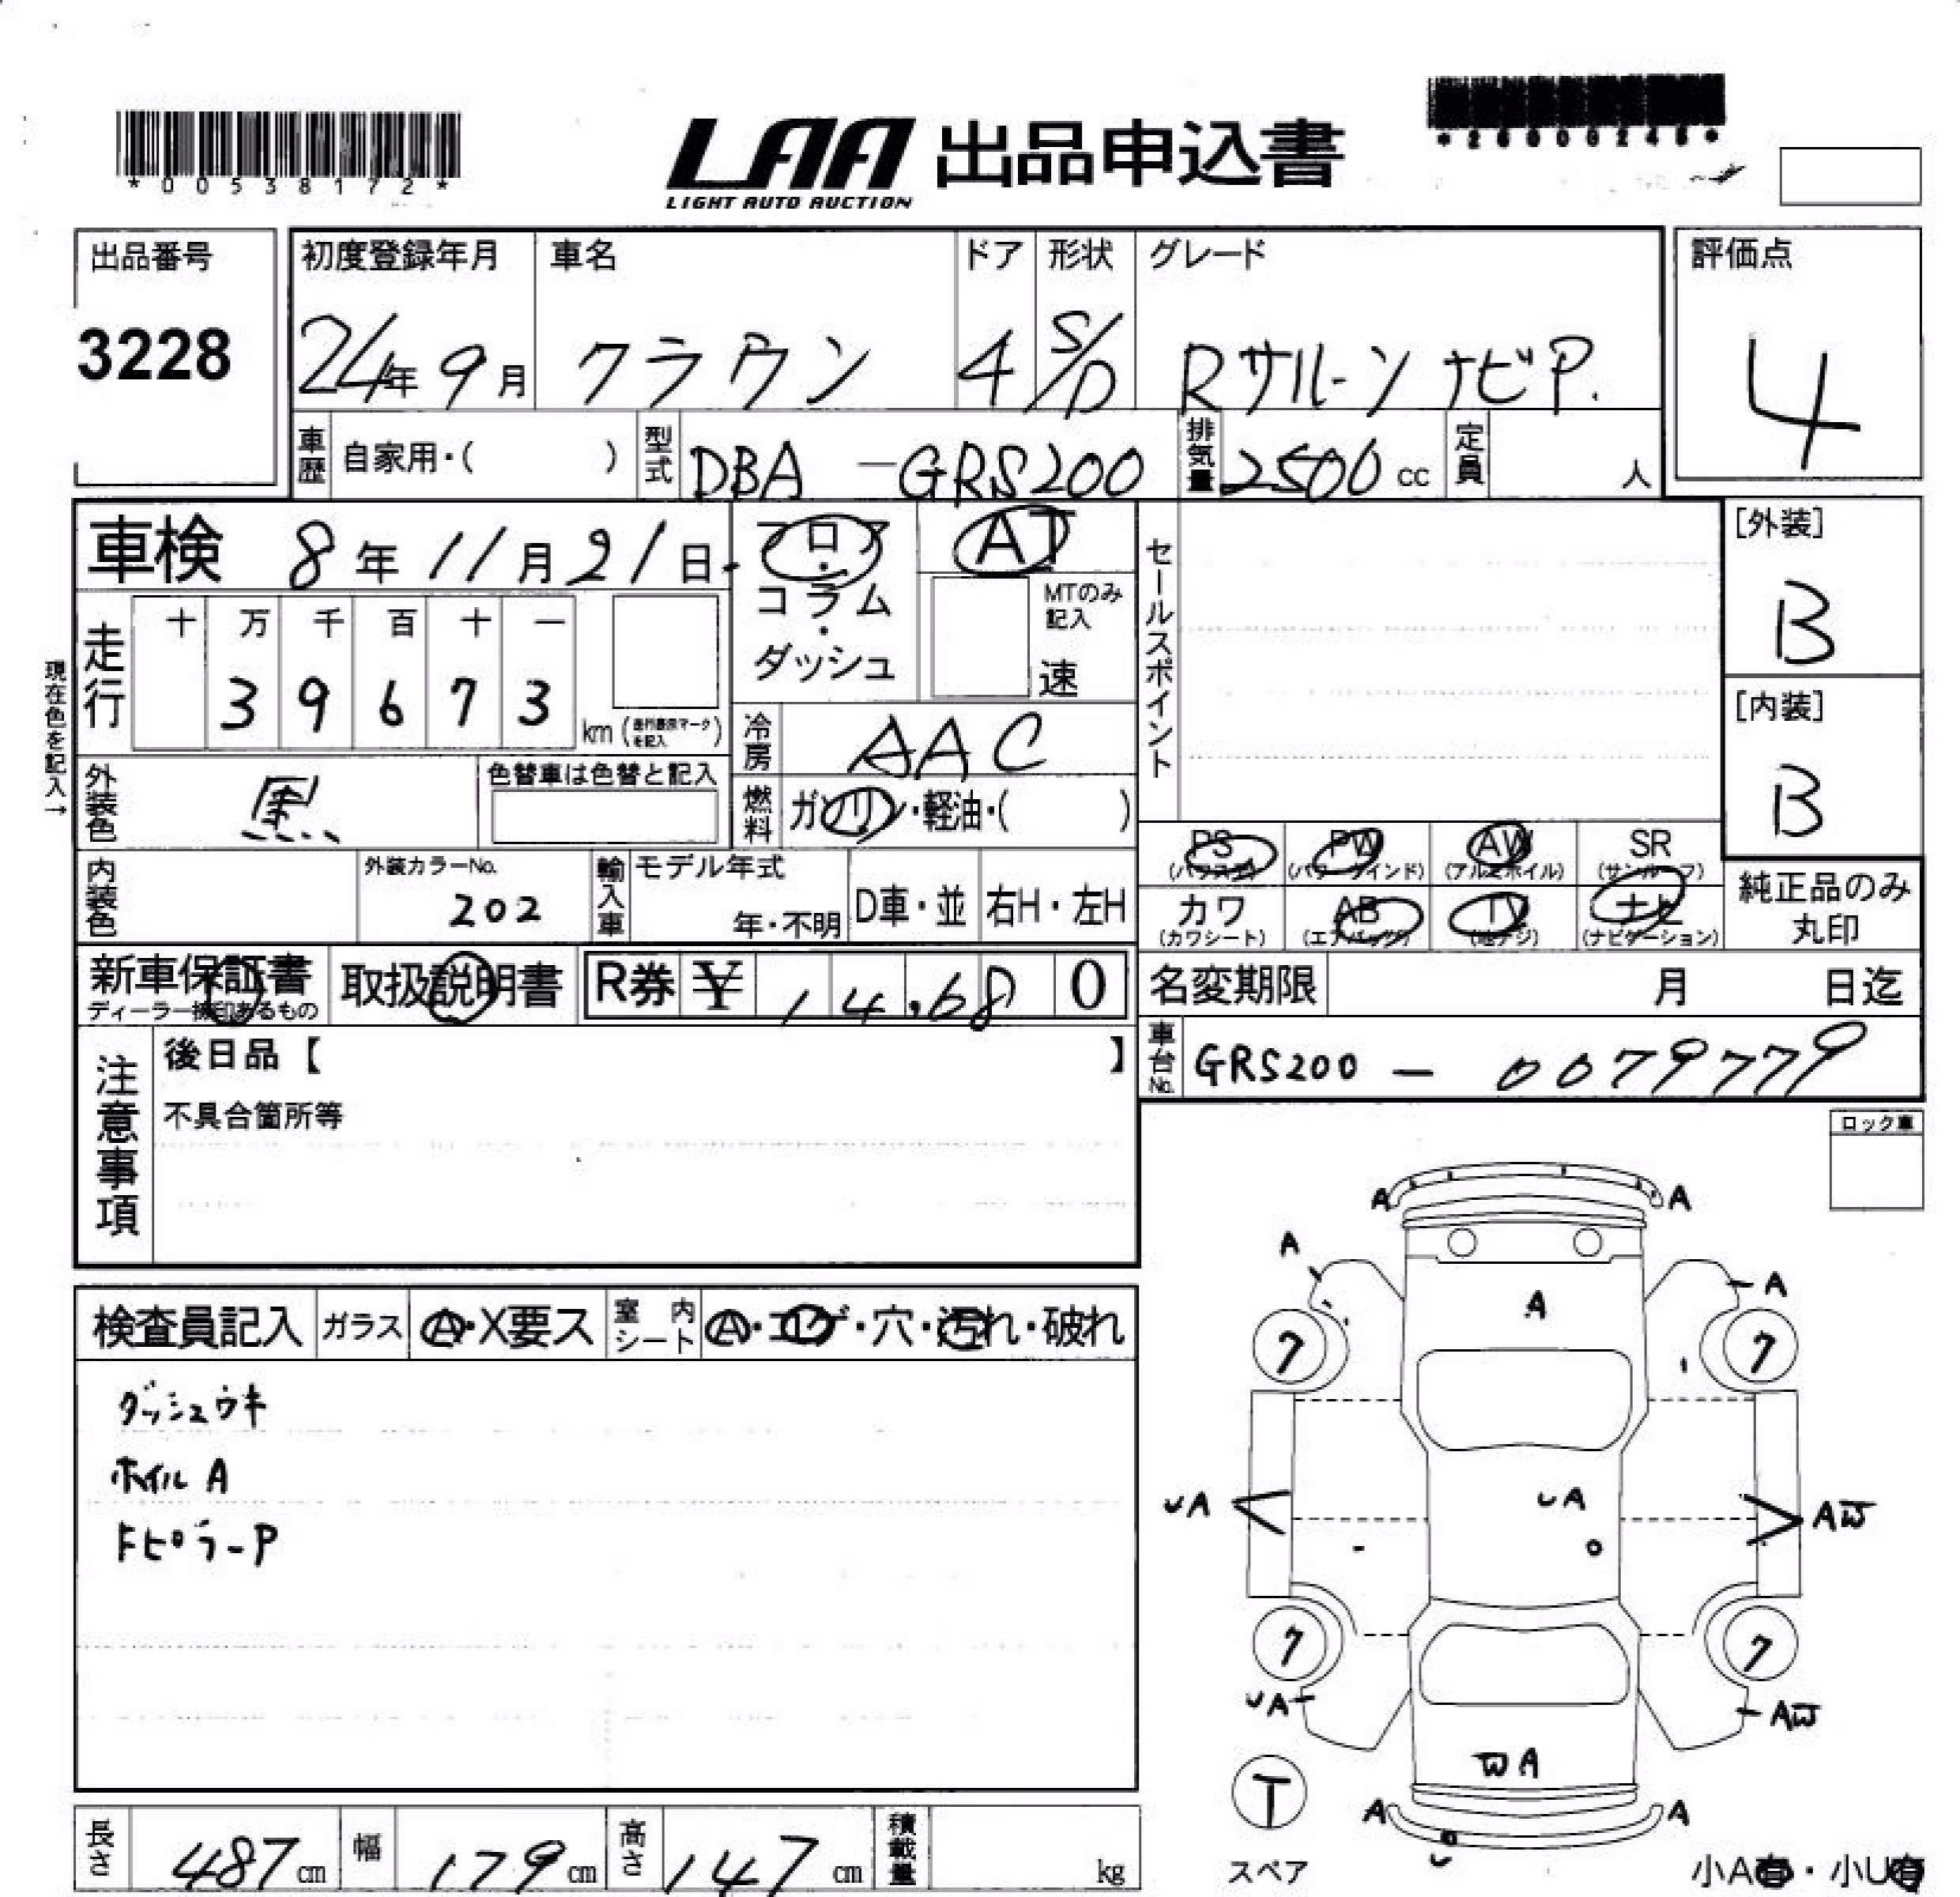 *00538172*
LAA 出品申込書
LIGHT AUTO AUCTION
*26000245*
出品番号 初度登録年月 車名 ドア 形状 グレード 評価点
3228 24年9月 クラウン 4 S/D Rサルーン ナビP. 4
車歴 自家用・( ) 型式 DBA -GRS200 排気量 2500cc 定員 人
車検 8年11月21日 フロア・コラム・ダッシュ AT
MTのみ記入 速
セールスポイント
[外装] B
[内装] B
現在色を記入→
走行 十 万 千 百 十 一
3 9 6 7 3 km (走行表示マークを記入)
冷房 AAC
外装色 黒 色替車は色替と記入
燃料 ガソリン・軽油・( )
PS (パワステ) PW (パワーウインド) AW (アルミホイル) SR (サンルーフ)
カワ (カワシート) AB (エアバッグ) TV (地デジ) ナビ (ナビゲーション)
純正品のみ丸印
内装色 外装カラーNo. 202 輸入車 モデル年式 年・不明 D車・並 右H・左H
新車保証書 ディーラー捺印あるもの 取扱説明書 R券 ¥ 14.68 0
名変期限 月 日迄
車台No. GRS200 - 0079779
注意事項 後日品【 】
不具合箇所等
ロック車
検査員記入 ガラス A・X要ス 室内シート A・コゲ・穴・汚れ・破れ
ダッシュウキ
ホイルA
FピラーP
A A
A A
A
7 7
UA UA AW
7 7
UA AW
WA
T
A A
U
スペア
小A有・小U有
長さ 487cm 幅 179cm 高さ 147cm 積載量 kg